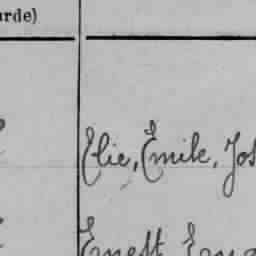 urde)
Elie, Emile, Jos
Ernest